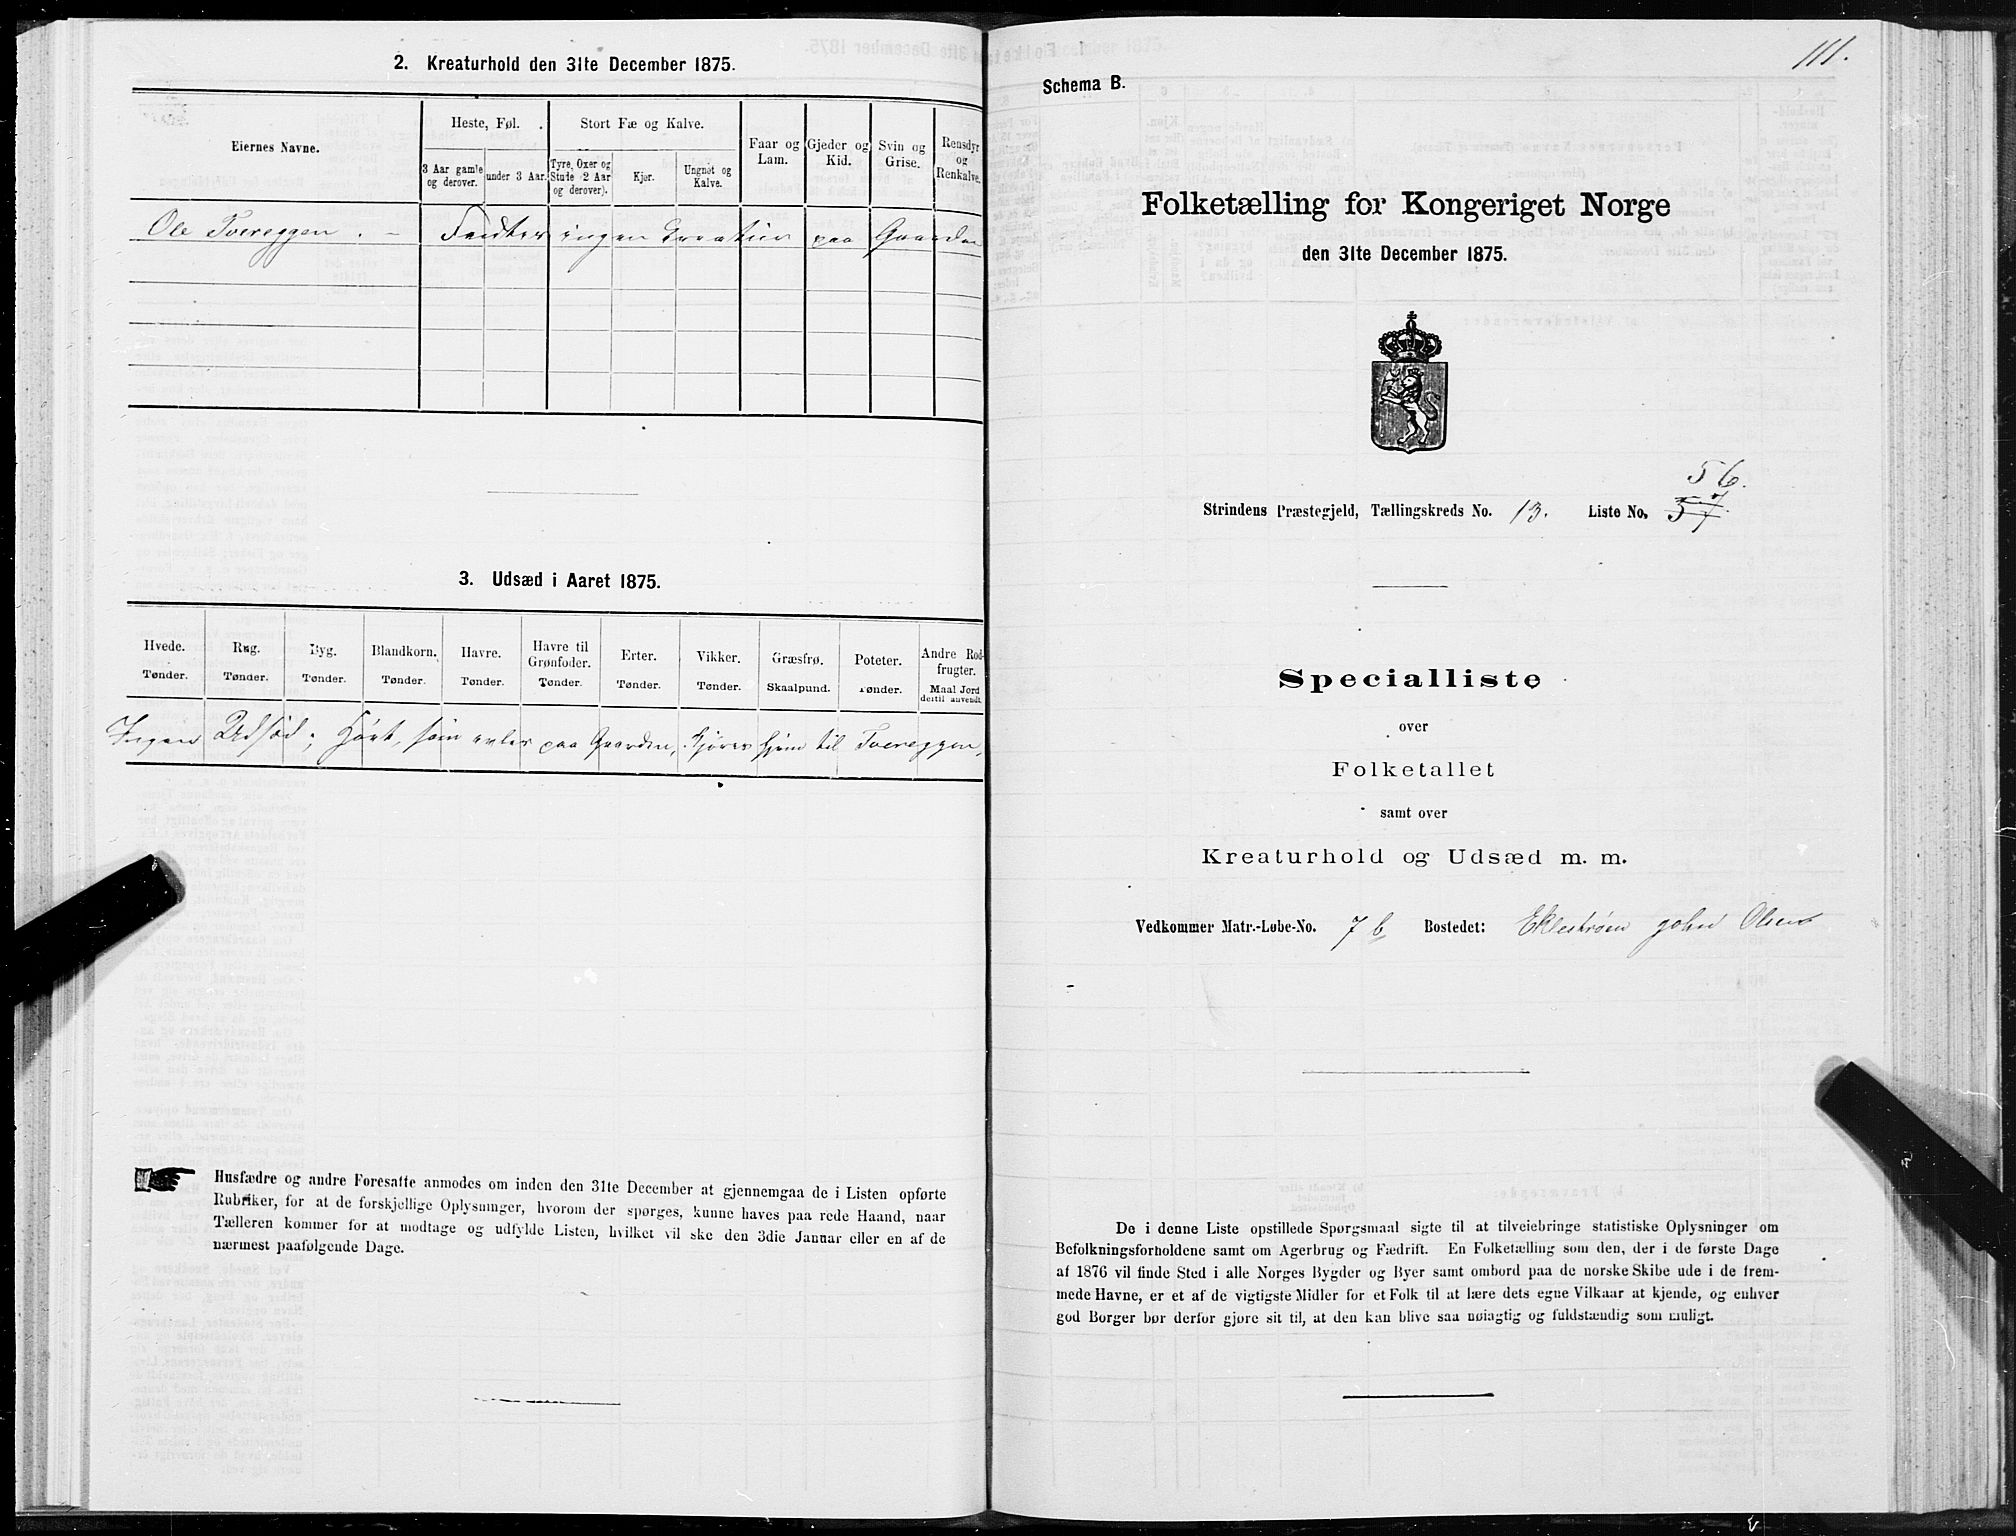 2. Kreaturhold den 31te December 1875.
Eiernes Navne.
Heste, Føl.
Stort Fæ og Kalve.
Faar og Lam.
Gjeder og Kid.
Svin og Grise.
Rensdyr og Renkalve.
3 Aar gamle og derover.
under 3 Aar.
Tyre, Oxer og Stude (2 Aar og derover).
Kjør.
Ungnøt og Kalve.
Ole Tvereggen. – Født ingen Creatur paa Gaarden
3. Udsæd i Aaret 1875.
Hvede. Rug. Byg. Blandkorn. Havre. Havre til Grønfoder. Erter. Vikker. Græsfrø. Poteter. Andre Rodfrugter.
Tønder. Tønder. Tønder. Tønder. Tønder. Tønder. Tønder. Tønder. Skaalpund. Tønder. Maal Jord dertil anvendt.
Ingen Udsød; som avles paa Gaarden, kjøres hjem til Tvereggen,
Husfædre og andre Foresatte anmodes om inden den 31te December at gjennemgaa de i Listen opførte
Rubriker, for at de forskjellige Oplysninger, hvorom der spørges, kunne haves paa rede Haand, naar
Tælleren kommer for at modtage og udfylde Listen, hvilket vil ske den 3die Januar eller en af de
nærmest paafølgende Dage.
111.
Schema B.
Folketælling for Kongeriget Norge
den 31te December 1875.
56.
Strindens Præstegjeld, Tællingskreds No. 13. Liste No. 57.
Specialliste
over
Folketallet
samt over
Kreaturhold og Udsæd m. m.
Vedkommer Matr.-Løbe-No. 7 b Bostedet: Eklestrøm John Olsens
De i denne Liste opstillede Spørgsmaal sigte til at tilveiebringe statistiske Oplysninger om
Befolkningsforholdene samt om Agerbrug og Fædrift. En Folketælling som den, der i de første Dage
af 1876 vil finde Sted i alle Norges Bygder og Byer samt ombord paa de norske Skibe ude i de frem-
mede Havne, er et af de vigtigste Midler for et Folk til at lære dets egne Vilkaar at kjende, og enhver
god Borger bør derfor gjøre sit til, at den kan blive saa nøiagtig og fuldstændig som muligt.